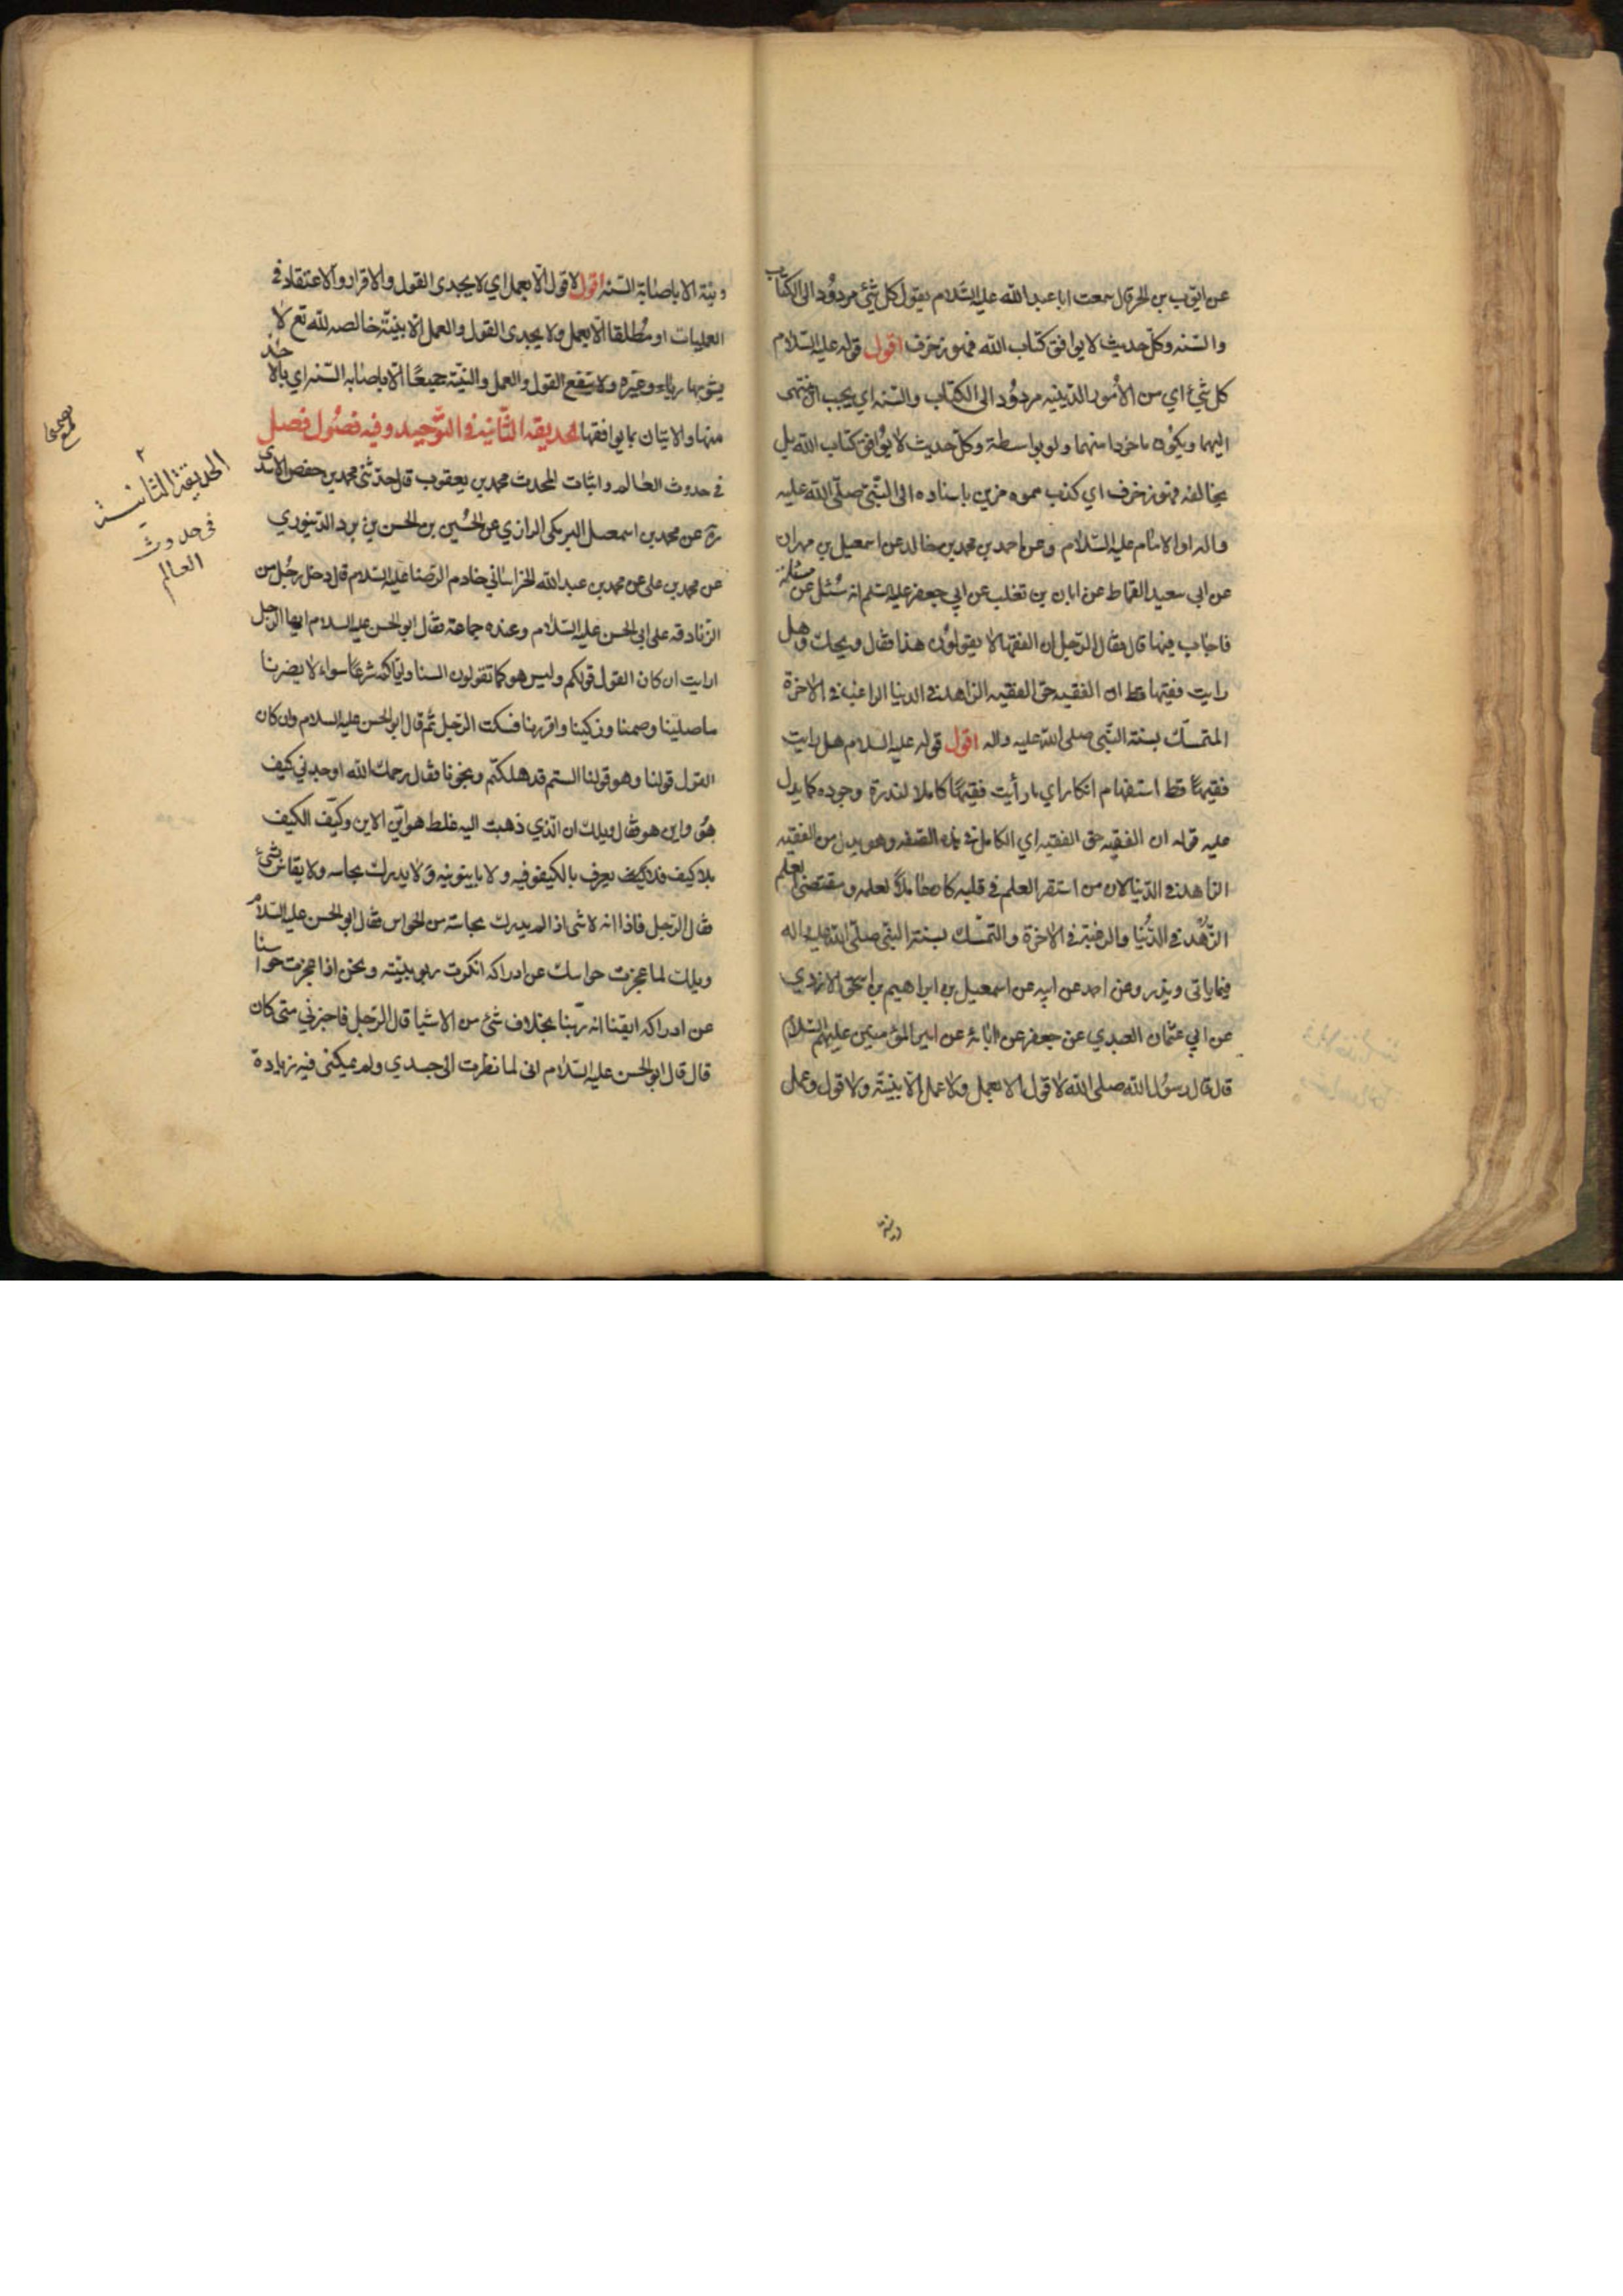 عن ايوب بن الحر قال سمعت ابا عبد الله عليه السلام يقول كل شئ مردود الى الكتاب
والسنه وكل حديث لا يوافق كتاب الله فهو زخرف اقول قوله عليه السلام
كل شئ اي من الأمور الدينيه مردود الى الكتاب والسنه اي يجب ان ينتهى
اليهما ويكون ماخوذا منهما ولو بواسطة وكل حديث لا يوافق كتاب الله بل
يخالفه فهو زخرف اي كذب مموه مزين باسناده الى النبى صلى الله عليه
واله او الامام عليه السلام وعن احمد بن محمد بن خالد عن اسمعيل بن مهران
عن ابى سعيد القماط عن ابان بن تغلب عن ابي جعفر عليه السلم انه سئل عن مسئلة
فاجاب فيها قال فقال الرجل ان الفقها لا يقولون هذا فقال ويحك وهل
رايت فقيها قط ان الفقيه حق الفقيه الزاهد فى الدنيا الراغب فى الاخرة
المتمسك بسنة النبى صلى الله عليه واله اقول قوله عليه السلام هل رايت
فقيها قط استفهام انكار اي ما رأيت فقيها كاملا لندرة وجوده كما يدل
عليه قوله ان الفقيه حق الفقيه اي الكامل فى هذه الصفه وهو بدل من الفقيه
الزاهد فى الدنيا لان من استقر العلم في قلبه كان عاملاً بعلمه ومقتضى العلم
الزهد فى الدنيا والرغبة فى الاخرة والتمسك بسنة النبى صلى الله عليه واله
فيما ياتى ويذر وعن احمد عن ابيه عن اسمعيل بن ابراهيم بن اسحق الازدي
عن ابي عثمان العبدي عن جعفر عن ابائه عن امير المؤمنين عليهم السلام
قال قال رسول الله صلى الله لا قول الا بعمل ولا عمل الا بنية ولا قول وعمل
ونية
ونية الا باصابة السنه اقول لا قول الا بعمل اي لا يجدى القول والاقرار والاعتقاد فى
العمليات او مطلقا الا بعمل ولا يجدى القول والعمل الا بنية خالصه لله تع لا
يشوبها رياء وغيره ولا ينفع القول والعمل والنية جميعا الا باصابه السنه اي بالاخذ
منها والاتيان بما يوافقها الحديقه الثانيه فى التوحيد وفيه فصول فصل
فى حدوث العالم واثبات المحدث محمد بن يعقوب قال حدثنى محمد بن جعفر الاسدى
ره عن محمد بن اسمعيل البرمكى الرازي عن الحسين بن الحسن بن برد الدينوري
عن محمد بن على عن محمد بن عبد الله الخراسانى خادم الرضا عليه السلام قال دخل رجل من
الزنادقه على ابى الحسن عليه السلام وعنده جماعة فقال ابو الحسن عليه السلام ايها الرجل
ارايت ان كان القول قولكم وليس هو كما تقولون السنا واياكم شرعا سواء لا يضرنا
ما صلينا وصمنا وزكينا واقررنا فسكت الرجل ثم قال ابو الحسن عليه السلام وان كان
القول قولنا وهو قولنا الستم قد هلكتم ونجونا فقال رحمك الله اوجدني كيف
هو واين هو فقال ويلك ان الذي ذهبت اليه غلط هو اين الاين وكيف الكيف
بلا كيف فلا يعرف بالكيفوفيه ولا باينونيه ولا يدرك بحاسه ولا يقاس بشئ
فقال الرجل فاذا انه لا شى اذا لم يدرك بحاسة من الحواس فقال ابو الحسن عليه السلام
ويلك لما عجزت حواسك عن ادراكه انكرت ربوبيته ونحن اذا عجزت حواسنا
عن ادراكه ايقنا انه ربنا بخلاف شئ من الاشيا قال الرجل فاخبرني متى كان
قال قال ابو الحسن عليه السلام انى لما نظرت الى جسدي ولم يمكنى فيه زيادة
٢
الحديقة الثانية
فى حدوث
العالم